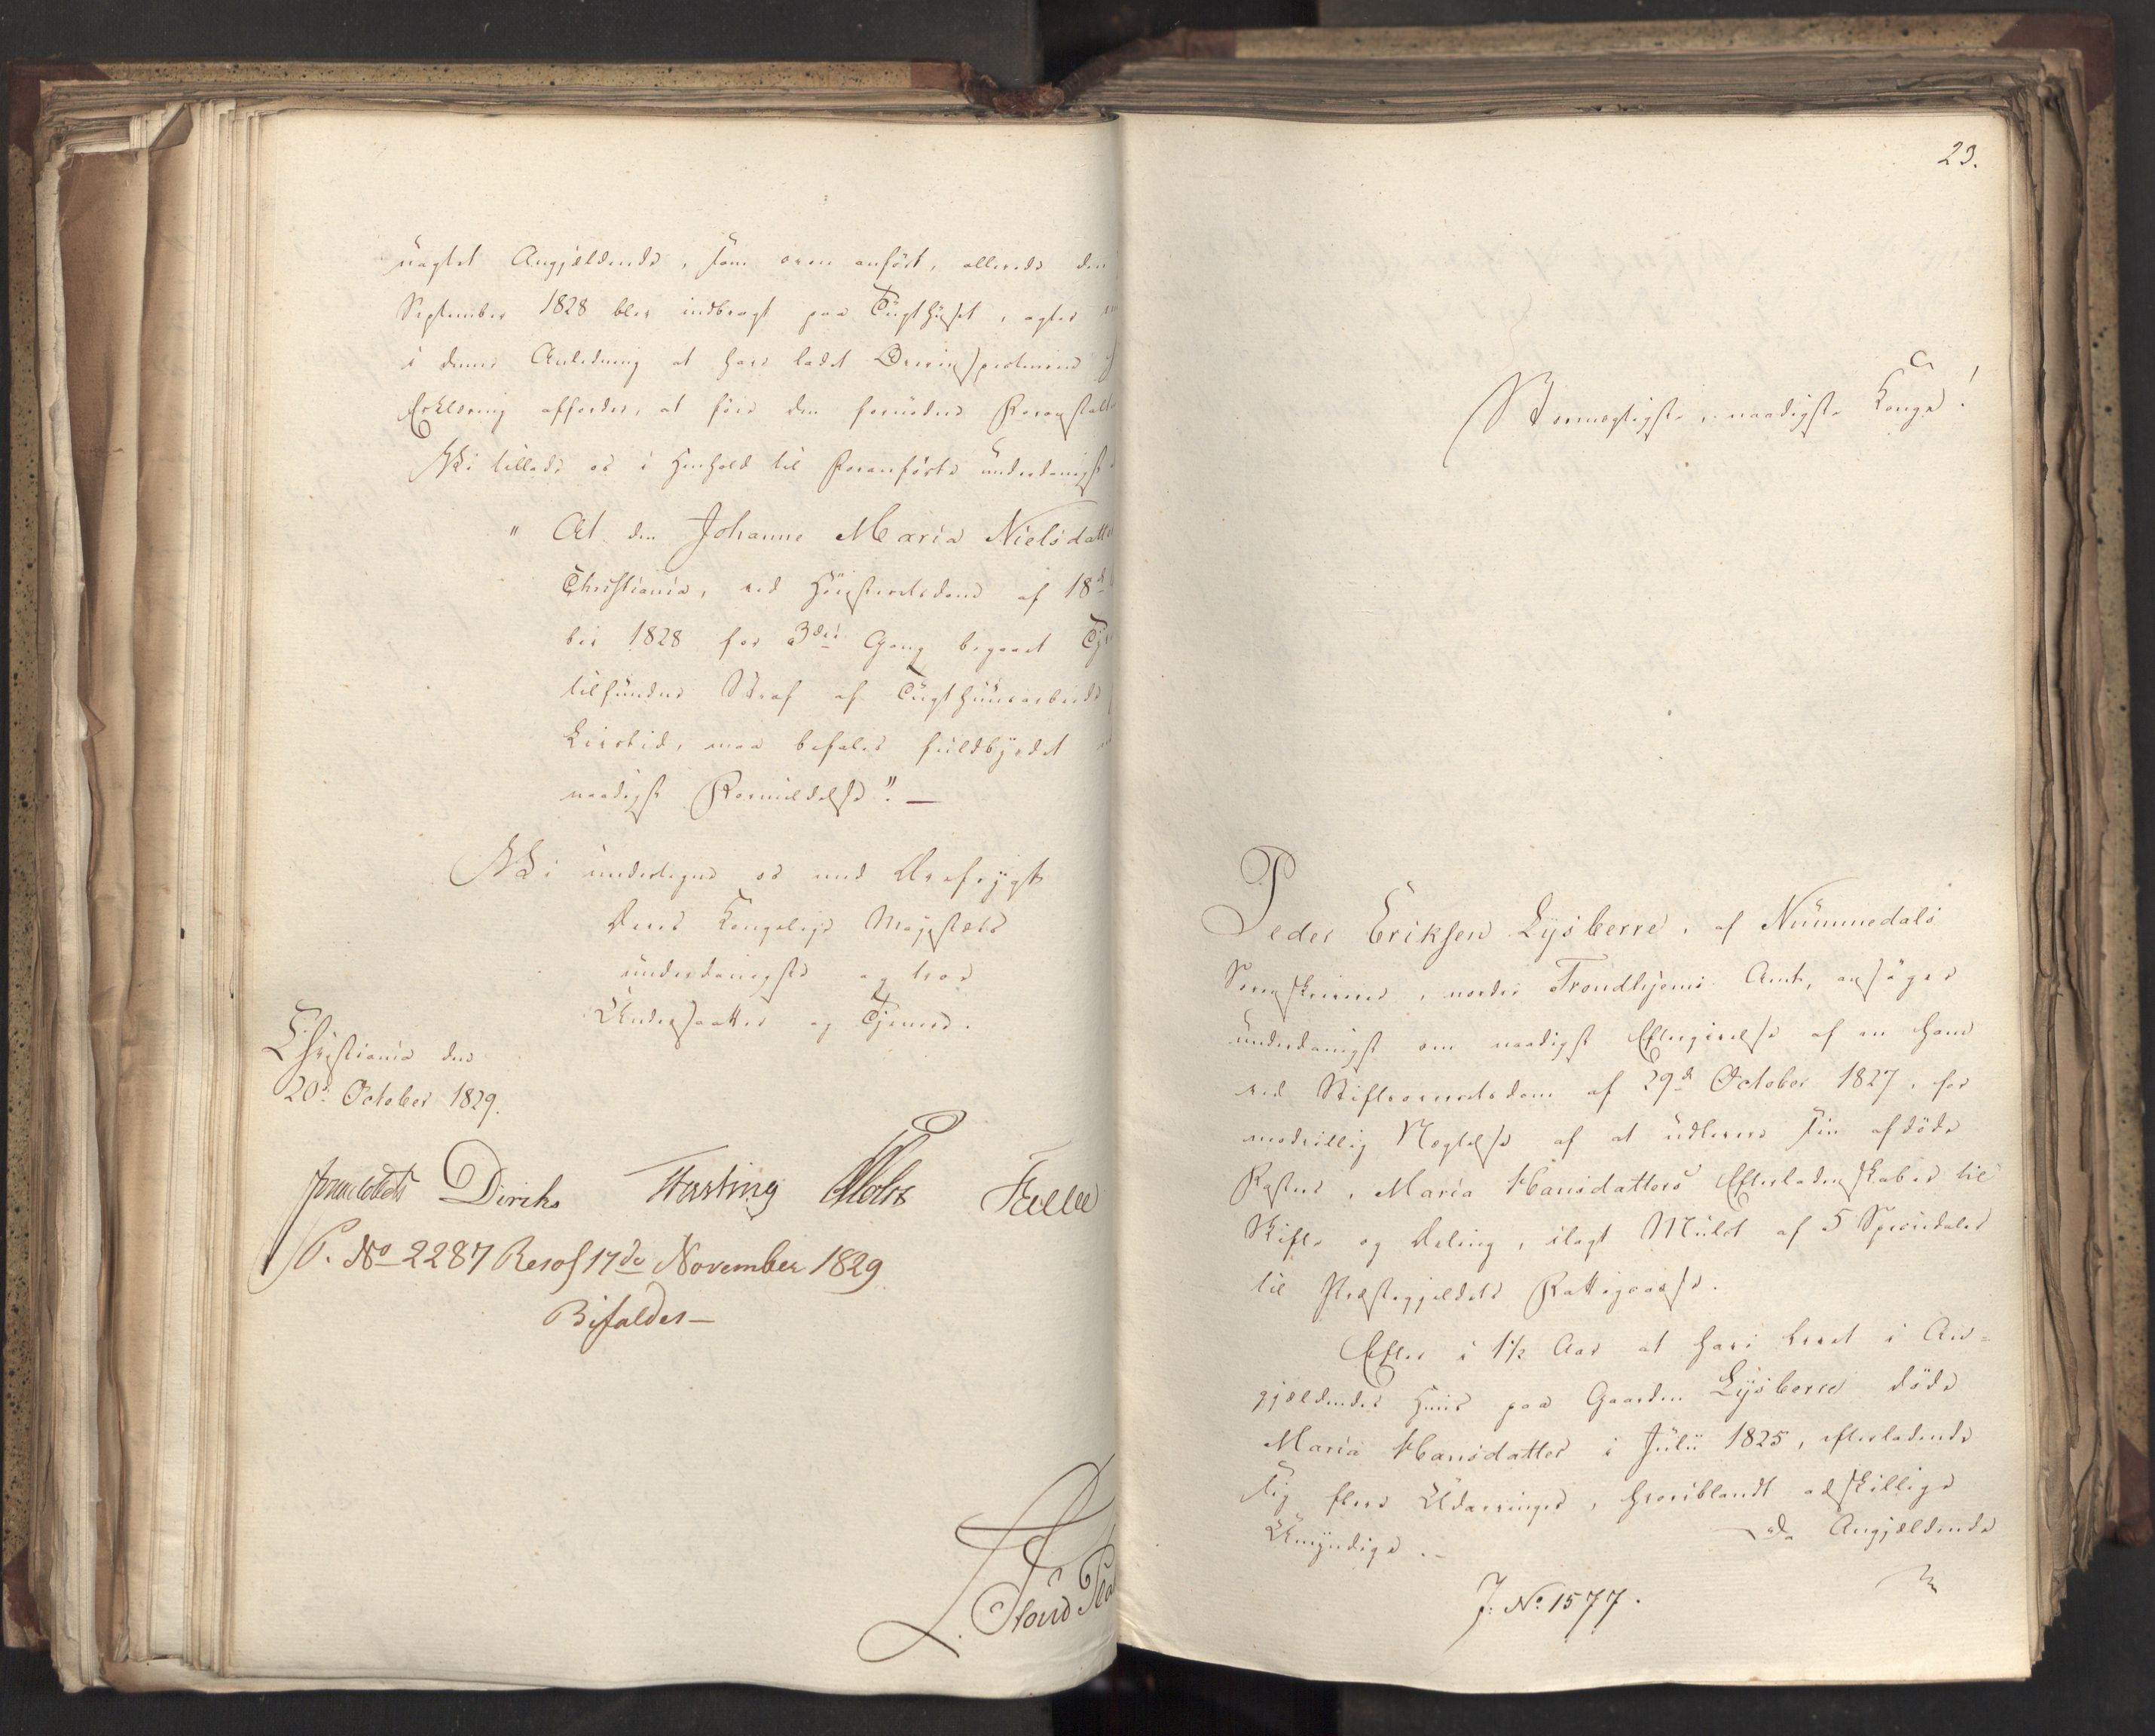 uagtet Angjældende, som oven anført, allerede den
September 1828 blev indbragt paa Tugthuset, agter
i denne Anledning at have ladet Overinspectionens
Erklæring affordre, at føre den fornødne Foranstalt
Vi tillade os i Henhold til Foranførte underdanigst
" At den Johanne Maria Nielsdatter
Christiania, ved Høiesteretsdom af 18de
ber 1828 for 3die Gang begaaet Ty
tilfundne Straf af Tugthuusarbeide
Livstid, maa befales fuldbyrdet
naadigst Formildelse". —
Vi undertegne os med Ærefrygt
Deres Kongelige Majestæts
underdanigste og troe
Undersaatter og Tjenere.
Christiania den
20de October 1829.
Diriks
P. No 2287 Resol 17de November 1829
Bifaldes —
23.
Stormægtigste, naadigste Konge!
Peder Eriksen Lysberre, af Nummedals
Sorenskriverie, nordre Trondhjems Amt, ansøger
underdanigst om naadigst Eftergivelse af en ham
ved Stiftsoverretsdom af 29de October 1827, for
modvillig Nægtelse af at udlevere sin afdøde
Søster, Maria Hansdatters Efterladenskaber til
Skifte og Deling, ilagt Mulct af 5 Speciedaler
til Præstegjeldets Fattigcasse.
Efter i 1½ Aar at have levet i An=
gjældendes Huus paa Gaarden Lysberre døde
Maria Hansdatter i Julii 1825, efterladende
sig flere Udarvinger, hvoriblandt adskillige
Umyndige. - Da Angjældende
J: No. 1577.